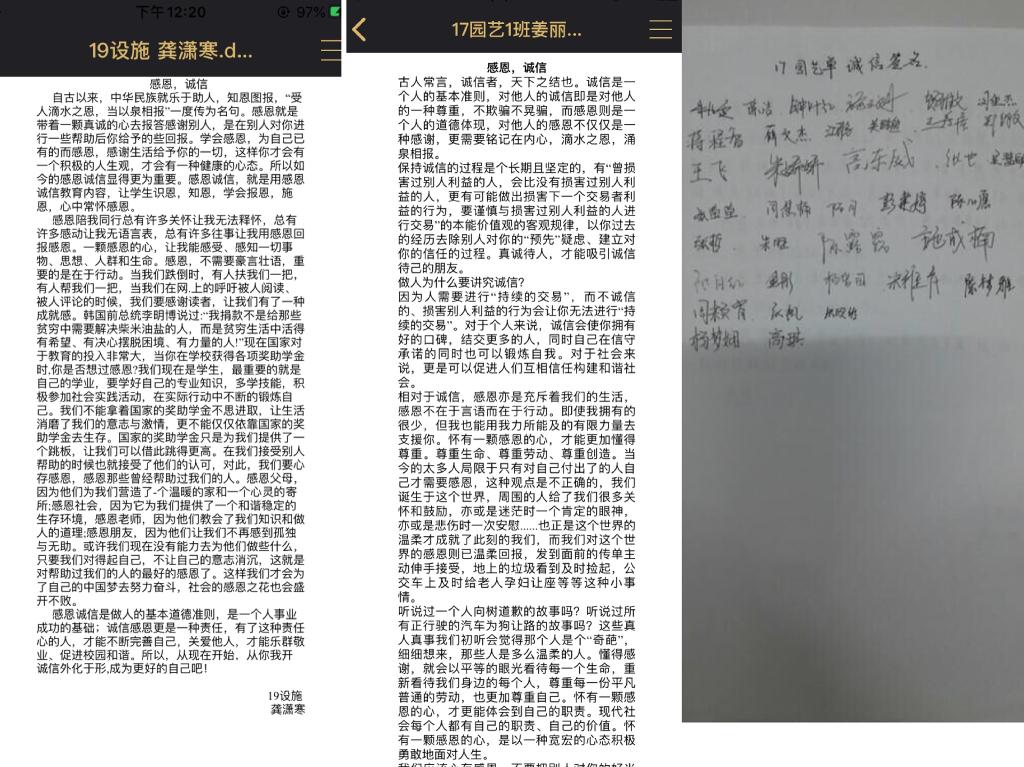 下午12:20
97%
19设施 龚潇寒.d...
感恩，诚信
自古以来，中华民族就乐于助人，知恩图报，“受
人滴水之恩，当以泉相报”一度传为名句。感恩就是
带着一颗真诚的心去报答感谢别人，是在别人对你进
行一些帮助后你给予的些回报。学会感恩，为自己已
有的而感恩，感谢生活给予你的一切，这样你才会有
一个积极的人生观，才会有一种健康的心态。所以如
今的感恩诚信显得更为重要。感恩诚信，就是用感恩
诚信教育内容，让学生识恩，知恩，学会报恩，施
恩，心中常怀感恩。
感恩陪我同行总有许多关怀让我无法释怀，总有
许多感动让我无语言表，总有许多往事让我用感恩回
报感恩。一颗感恩的心，让我能感受、感知一切事
物、思想、人群和生命。感恩，不需要豪言壮语，重
要的是在于行动。当我们跌倒时，有人扶我们一把，
有人帮我们一把，当我们在网.上的呼吁被人阅读、
被人评论的时候，我们要感谢读者，让我们有了一种
成就感。韩国前总统李明博说过:“我捐款不是给那些
贫穷中需要解决柴米油盐的人，而是贫穷生活中活得
有希望、有决心摆脱困境、有力量的人!”现在国家对
于教育的投入非常大，当你在学校获得各项奖助学金
时,你是否想过感恩?我们现在是学生，最重要的就是
自己的学业，要学好自己的专业知识，多学技能，积
极参加社会实践活动，在实际行动中不断的锻炼自
己。我们不能拿着国家的奖助学金不思进取，让生活
消磨了我们的意志与激情，更不能仅仅依靠国家的奖
助学金去生存。国家的奖助学金只是为我们提供了一
个跳板，让我们可以借此跳得更高。在我们接受别人
帮助的时候也就接受了他们的认可，对此，我们要心
存感恩，感恩那些曾经帮助过我们的人。感恩父母，
因为他们为我们营造了-个温暖的家和一个心灵的寄
所;感恩社会，因为它为我们提供了一个和谐稳定的
生存环境，感恩老师，因为他们教会了我们知识和做
人的道理;感恩朋友，因为他们让我们不再感到孤独
与无助。或许我们现在没有能力去为他们做些什么，
只要我们对得起自己，不让自己的意志消沉，这就是
对帮助过我们的人的最好的感恩了。这样我们才会为
了自己的中国梦去努力奋斗，社会的感恩之花也会盛
开不败。
感恩诚信是做人的基本道德准则，是一个人事业
成功的基础；诚信感恩更是一种责任，有了这种责任
心的人，才能不断完善自己，关爱他人，才能乐群敬
业、促进校园和谐。所以，从现在开始，从你我开
诚信外化于形,成为更好的自己吧!
19设施
龚潇寒
17园艺1班姜丽...
感恩，诚信
古人常言，诚信者，天下之结也。诚信是一
个人的基本准则，对他人的诚信即是对他人
的一种尊重，不欺骗不晃骗，而感恩则是一
个人的道德体现，对他人的感恩不仅仅是一
种感谢，更需要铭记在内心，滴水之恩，涌
泉相报。
保持诚信的过程是个长期且坚定的，有“曾损
害过别人利益的人，会比没有损害过别人利
益的人，更有可能做出损害下一个交易者利
益的行为，要谨慎与损害过别人利益的人进
行交易”的本能价值观的客观规律，以你过去
的经历去除别人对你的“预先”疑虑、建立对
你的信任的过程。真诚待人，才能吸引诚信
待己的朋友。
做人为什么要讲究诚信？
因为人需要进行“持续的交易”，而不诚信
的、损害别人利益的行为会让你无法进行“持
续的交易”。对于个人来说，诚信会使你拥有
好的口碑，结交更多的人，同时自己在信守
承诺的同时也可以锻炼自我。对于社会来
说，更是可以促进人们互相信任构建和谐社
会。
相对于诚信，感恩亦是充斥着我们的生活，
感恩不在于言语而在于行动。即使我拥有的
很少，但我也能用我力所能及的有限力量去
支援你。怀有一颗感恩的心，才能更加懂得
尊重。尊重生命、尊重劳动、尊重创造。当
今的太多人局限于只有对自己付出了的人自
己才需要感恩，这种观点是不正确的，我们
诞生于这个世界，周围的人给了我们很多关
怀和鼓励，亦或是迷茫时一个肯定的眼神，
亦或是悲伤时一次安慰......也正是这个世界的
温柔才成就了此刻的我们，而我们对这个世
界的感恩则已温柔回报，发到面前的传单主
动伸手接受，地上的垃圾看到及时捡起，公
交车上及时给老人孕妇让座等等这种小事
情。
听说过一个人向树道歉的故事吗？听说过所
有正行驶的汽车为狗让路的故事吗？这些真
人真事我们初听会觉得那个人是个“奇葩”，
细细想来，那些人是多么温柔的人。懂得感
谢，就会以平等的眼光看待每一个生命，重
新看待我们身边的每个人，尊重每一份平凡
普通的劳动，也更加尊重自己。怀有一颗感
恩的心，才更能体会到自己的职责。现代社
会每个人都有自己的职责、自己的价值。怀
有一颗感恩的心，是以一种宽宏的心态积极
勇敢地面对人生。
17园艺单 诚信签名
王飞 高东威
陈露露 施成楠
陈梦雅
杨梦娟 高琪